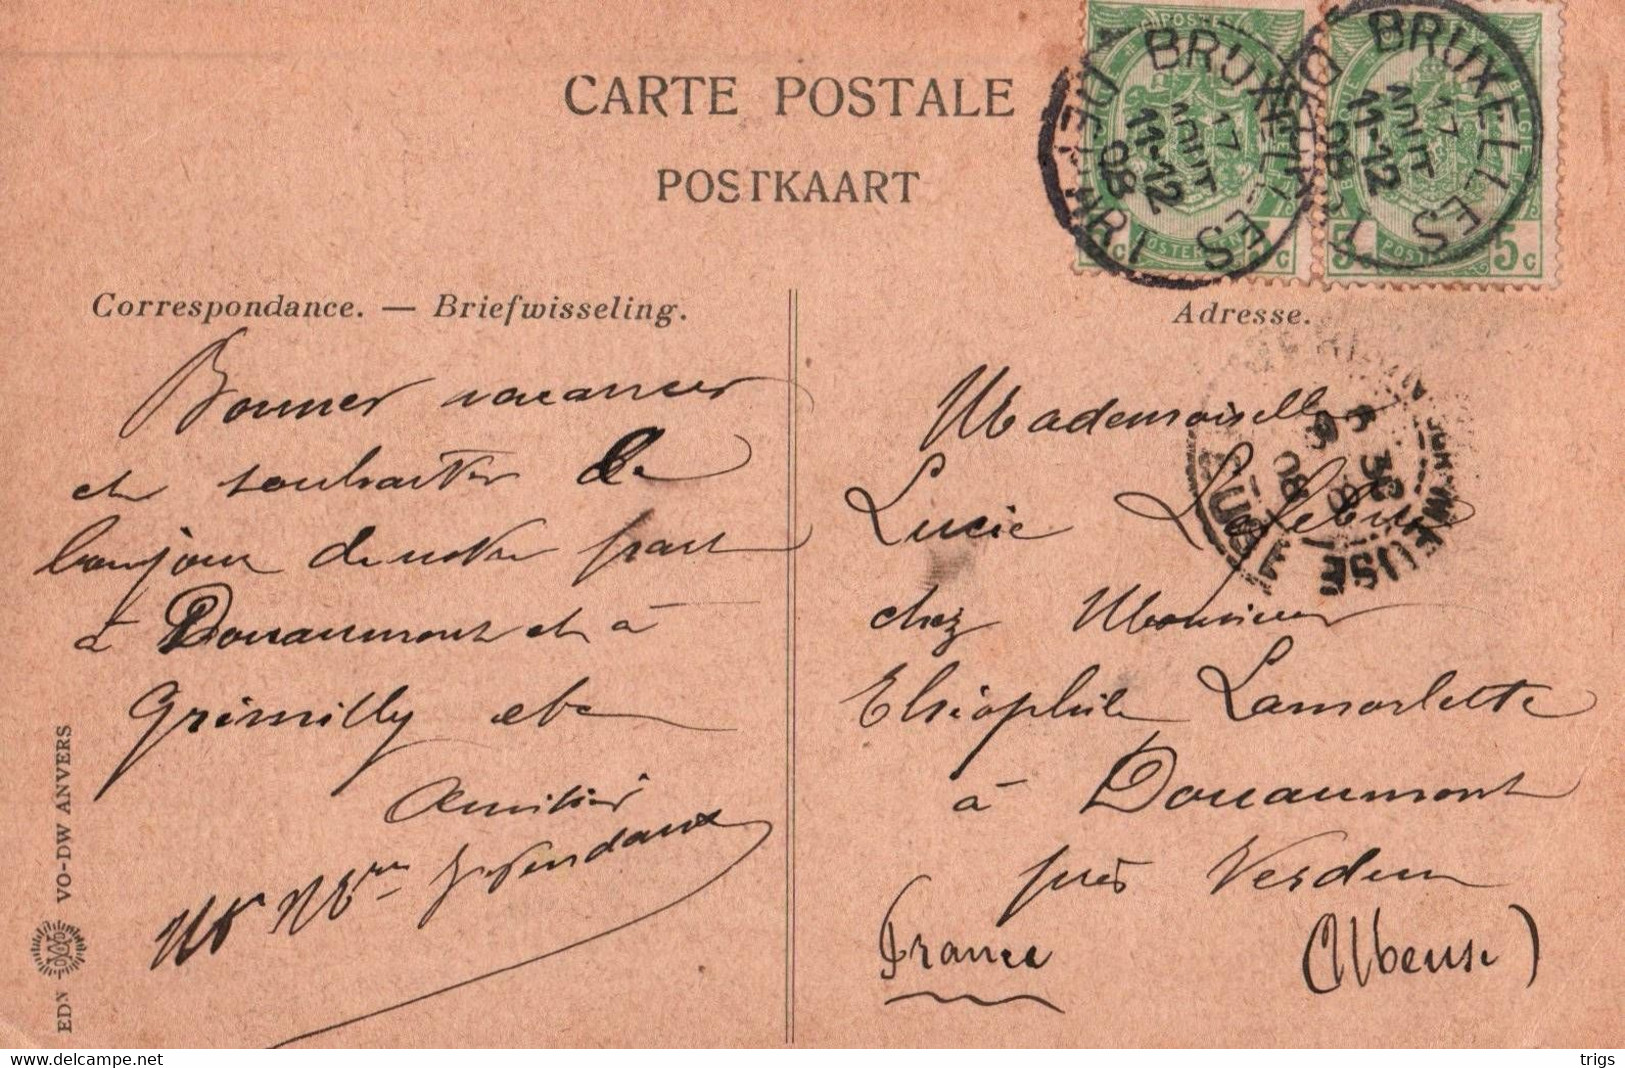 CARTE POSTALE
POSTKAART
POSTES
BRUXELLES
17
AOUT
11-12
08
DEPART
BRUXELLES
17
AOUT
11-12
08
DEPART
5c
5c
Correspondance. — Briefwisseling.
Adresse.
Bonnes vacances
et souhaiter le
bonjour de notre part
à Douaumont et à
Grémilly etc
Amitiés
Mr Mme
Mademoiselle
Lucie Lefebure
chez Monsieur
Lamorlette
à Douaumont
près Verdun
(Meuse)
France
MEUSE
08
EDN VO-DW ANVERS
https://www.delcampe.net
trigs